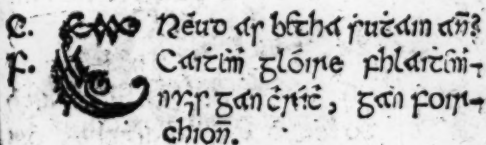 C. CRéud as beatha ṡuṫain añ?
F. Caiṫeaṁ glóire fhlaiṫeaṁ-
nuis gan ċríċ, gan foir-
chioñ.